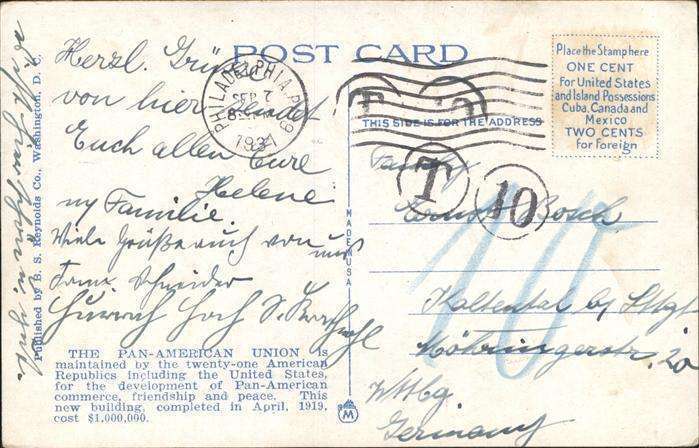 POST CARD
Herzl. Grüße
von hier sendet
Euch allen Eure
Helene
u. Familie.
Viele Grüße auch von uns
Franz Schneider
Hoch S.
PHILADELPHIA PA
SEP 7
1931
THIS SIDE IS FOR THE ADDRESS
Place the Stamp here
ONE CENT
For United States
and Island Possessions
Cuba, Canada and
Mexico
TWO CENTS
for Foreign
T 10
Familie
Ernst Bosch
Kaltental by Sttgt
Möhringerstr. 20
Wttbg
Germany
10
MADE IN USA
Published by B. S. Reynolds Co., Washington, D. C.
THE PAN-AMERICAN UNION is
maintained by the twenty-one American
Republics including the United States,
for the development of Pan-American
commerce, friendship and peace. This
new building, completed in April, 1919,
cost $1,000,000.
M